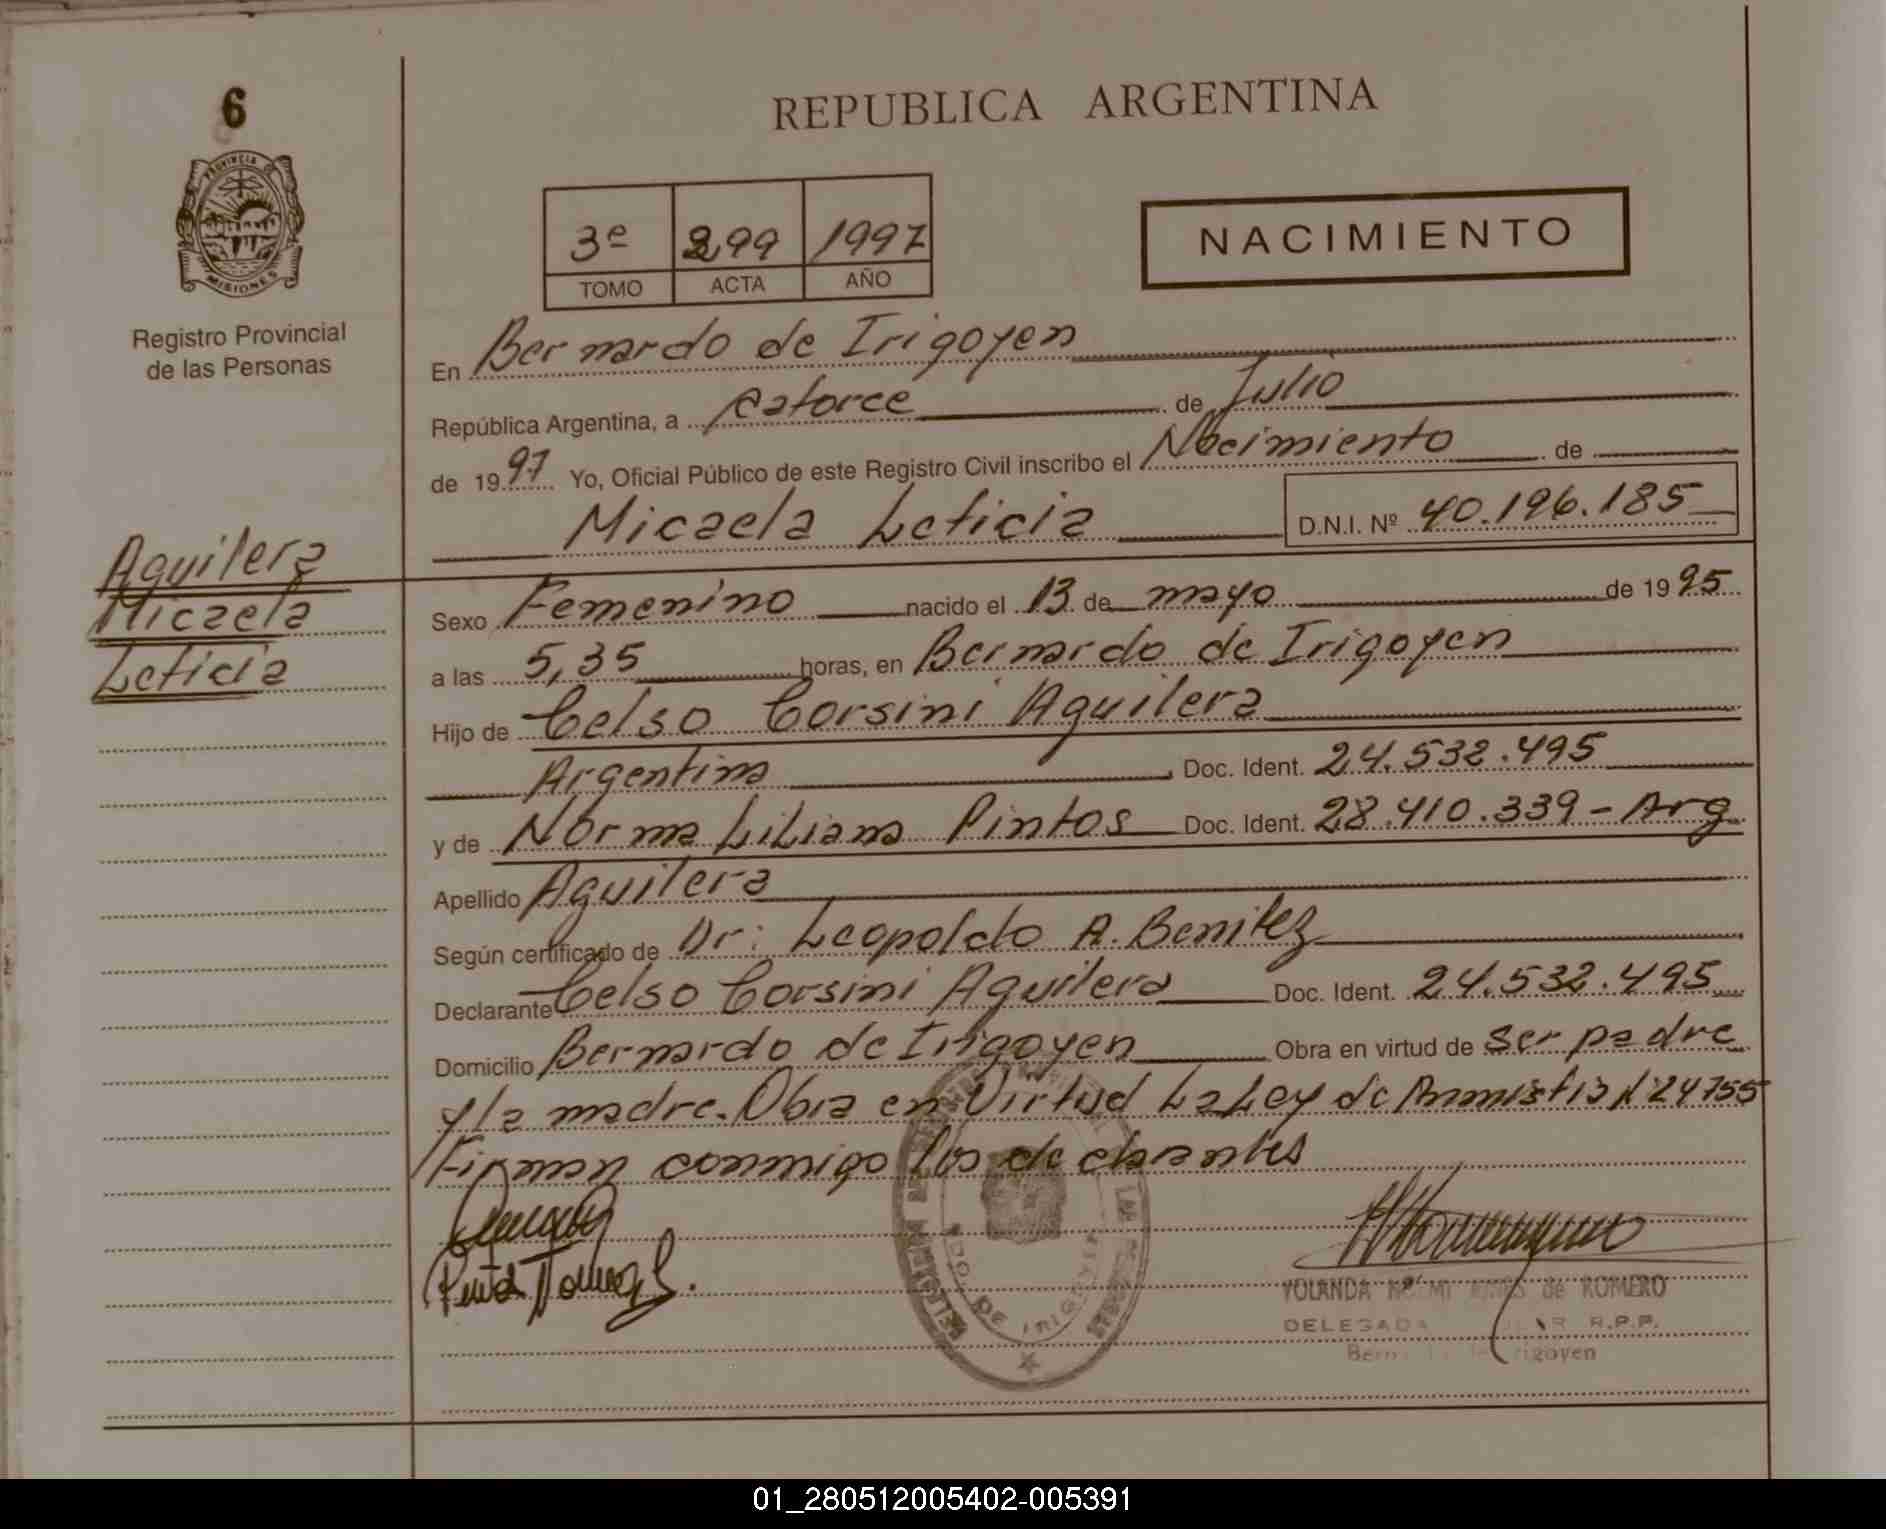 6
PROVINCIA
MISIONES
Registro Provincial
de las Personas
REPUBLICA ARGENTINA
3º 299 1997
TOMO ACTA AÑO
NACIMIENTO
En Bernardo de Irigoyen
República Argentina, a catorce de Julio
de 1997 Yo, Oficial Público de este Registro Civil inscribo el Nacimiento de
Micaela Leticia D.N.I. Nº 40.196.185
Aguilera
Micaela
Leticia
Sexo Femenino nacido el 13 de mayo de 1995
a las 5,35 horas, en Bernardo de Irigoyen
Hijo de Celso Corsini Aguilera
Argentina Doc. Ident. 24.532.495
y de Norma Liliana Pintos Doc. Ident. 28.410.339 - Arg
Apellido Aguilera
Según certificado de Dr: Leopoldo A. Benitez
Declarante Celso Corsini Aguilera Doc. Ident. 24.532.495
Domicilio Bernardo de Irigoyen Obra en virtud de ser padre
y la madre. Obra en Virtud La Ley de Amnistia Nº 24755
Firman conmigo los declarantes
YOLANDA de ROMERO
DELEGADA R.P.P.
Irigoyen
BDO. DE IRIGOYEN
01_280512005402-005391